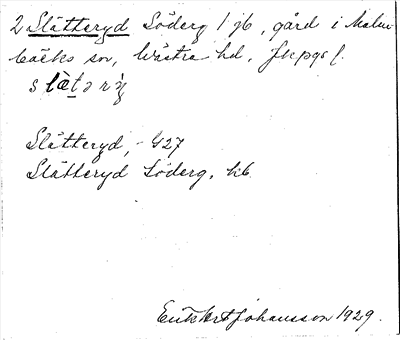 2 Slätteryd Söderg 1 jb, gård i Malm-
bäcks sn, Västra hd, Jkpgs l.
Slätteryd, G27
Slätteryd Söderg. hb
Johansson 1929.